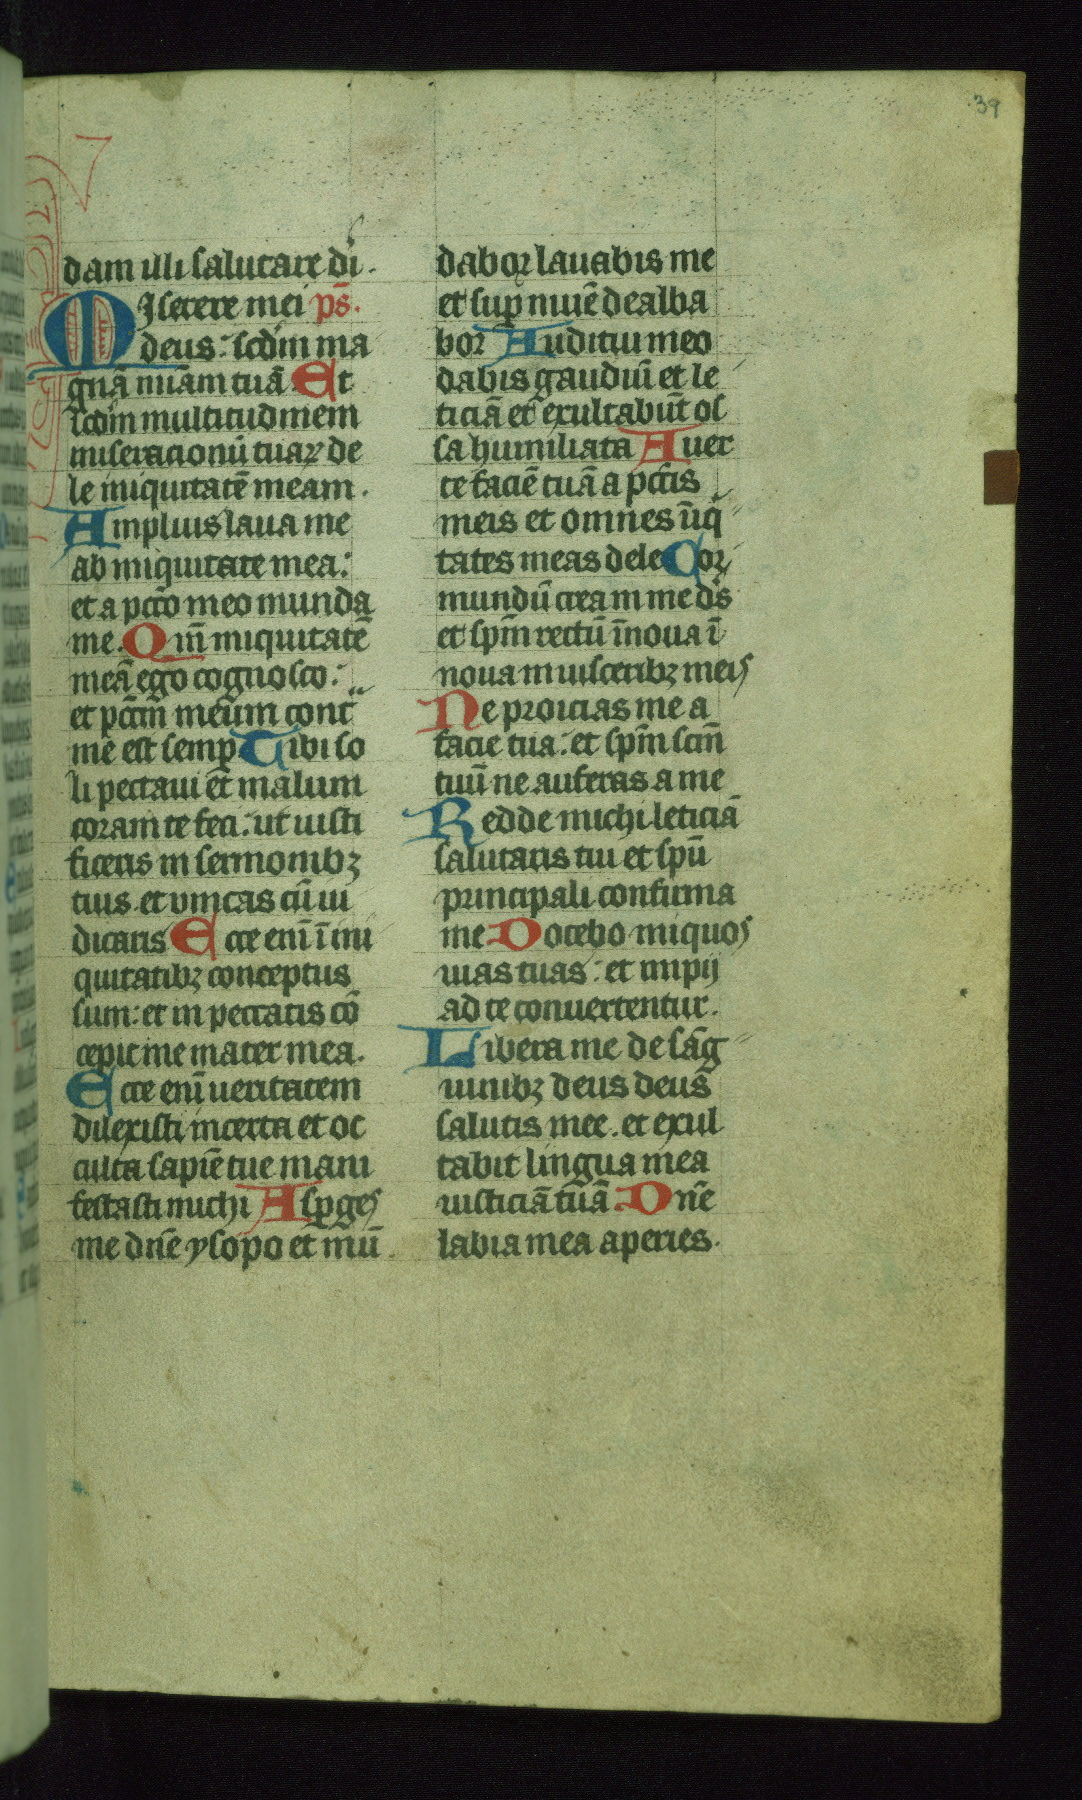 39
dam illi salutare di.
Miserere mei ps̄.
deus: scdm̄ ma
gnā mīam tuā Et
scdm̄ multitudinem
miseracionū tuaꝝ de
le iniquitatē meam.
Amplius laua me
ab iniquitate mea:
et a pctō meo munda
me. Qm̄ iniquitatē
meā ego cognosco:
et pctm̄ meum cont̄
me est semp Tibi so
li peccaui et malum
coram te feci: ut iusti
ficeris in sermonibꝫ
tuis et vincas cū iu
dicaris Ecce enī ī ini
quitatibꝫ conceptus
sum: et in peccatis cō
cepit me mater mea.
Ecce enī ueritatem
dilexisti incerta et oc
culta sapiē tue mani
festasti michi Aspges
me dn̄e ysopo et mū
dabor lauabis me
et sup niuē dealba
bor Auditui meo
dabis gaudiū et le
ticiā et exultabūt os
sa humiliata Auer
te faciē tuā a pctīs
meis et omnes īiq̄
tates meas dele Cor
mundū crea in me ds̄
et spm̄ rectū īnoua ī
noua in uisceribꝫ meis
Ne proicias me a
facie tua: et spm̄ scm̄
tuū ne auferas a me
Redde michi leticiā
salutaris tui et spū
principali confirma
me Docebo iniquos
uias tuas: et impij
ad te conuertentur.
Libera me de sāg
uinibꝫ deus deus
salutis mee. et exul
tabit lingua mea
iusticiā tuā Dn̄e
labia mea aperies.